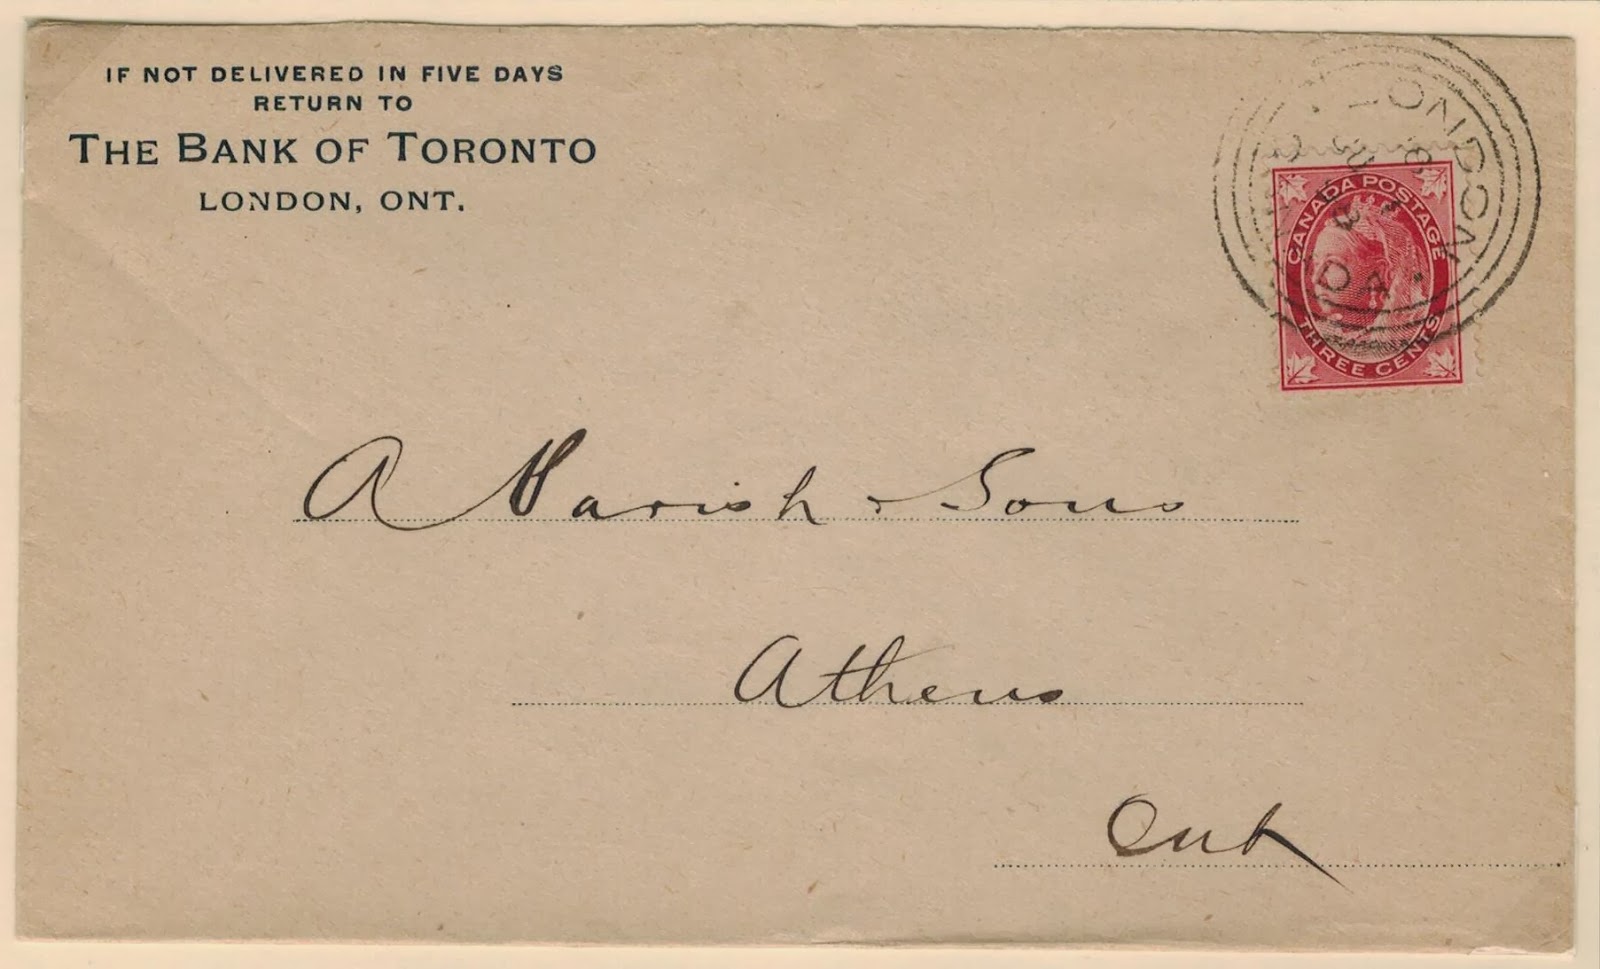 IF NOT DELIVERED IN FIVE DAYS
RETURN TO
THE BANK OF TORONTO
LONDON, ONT.
LONDON
CANADA
CANADA POSTAGE
THREE CENTS
A Parish & Sons
Athens
Ont